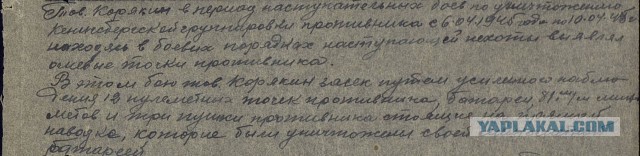 Тов. Корякин в период наступательных боев по уничтожению
Кенигсбергской группировки противника с 6.04.1945 года по 10.04.45г
находясь в боевых порядках наступающей пехоты выявлял
огневые точки противника.
В этом бою тов. Корякин засек путем усиленного наблю-
дения 12 пулеметных точек противника, батарею 81 м/м мино-
метов и три пушки противника стоящие на прямой
наводке, которые были уничтожены своей
батареей
YAPLAKAL.COM